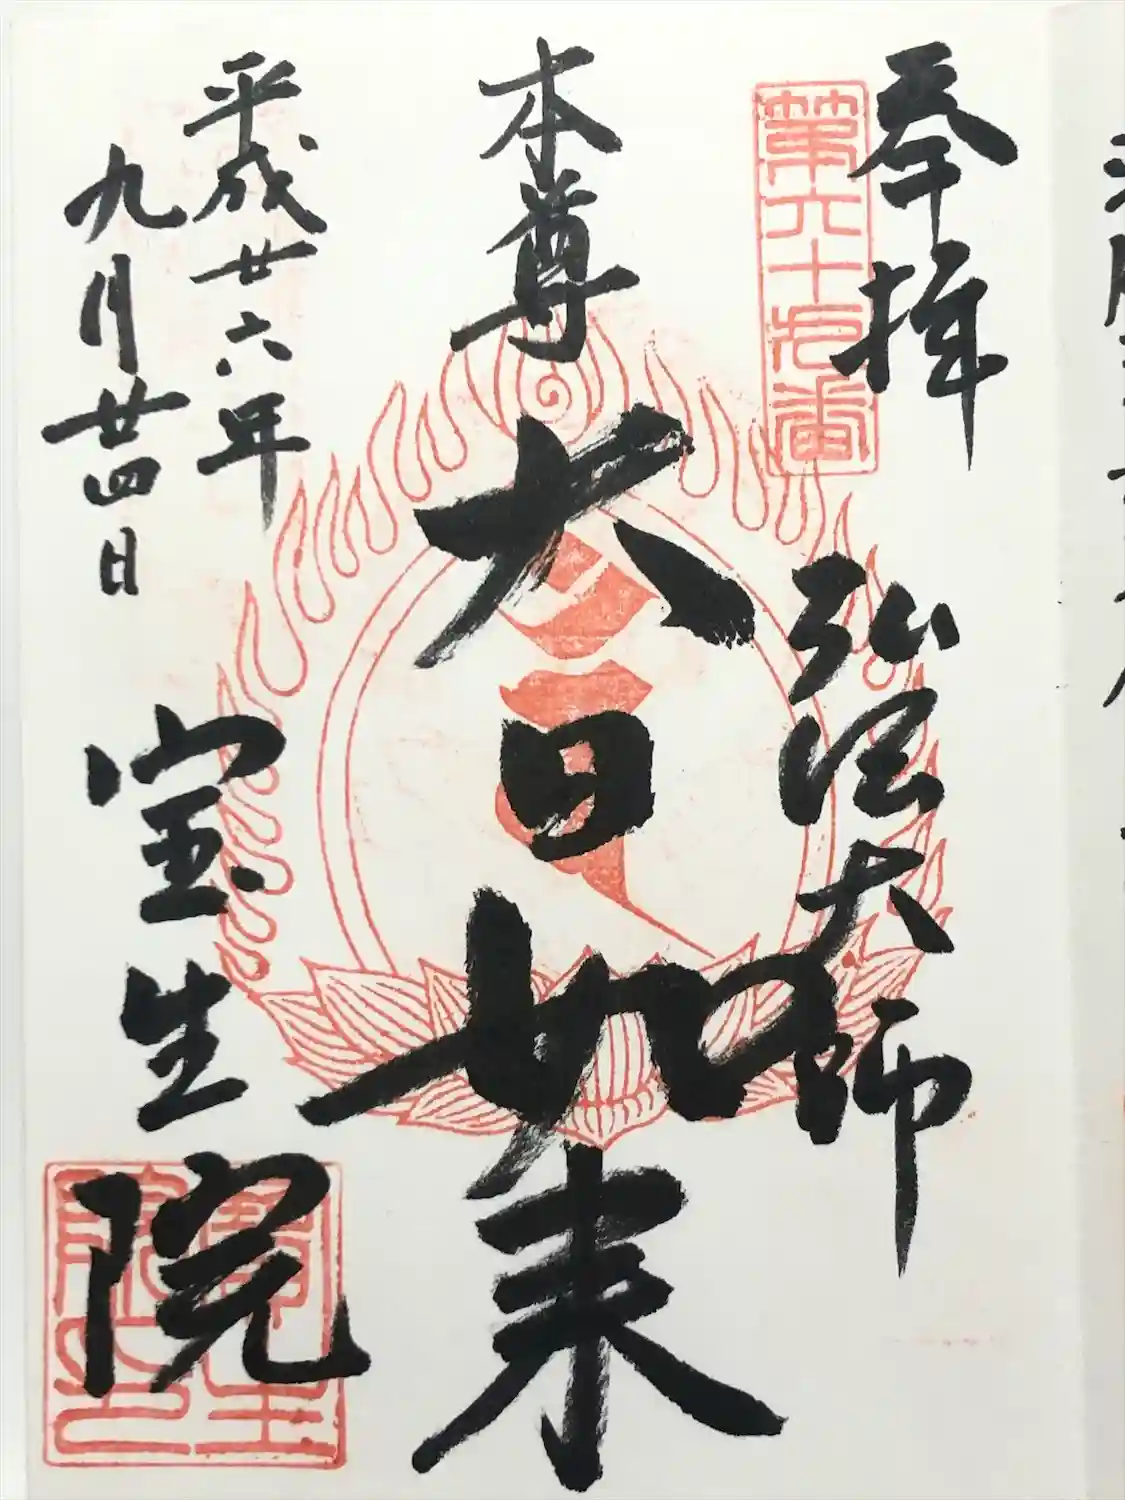 奉拝
第六十九番
弘法大師
本尊
大日如来
平成廿六年
九月廿四日
宝生院